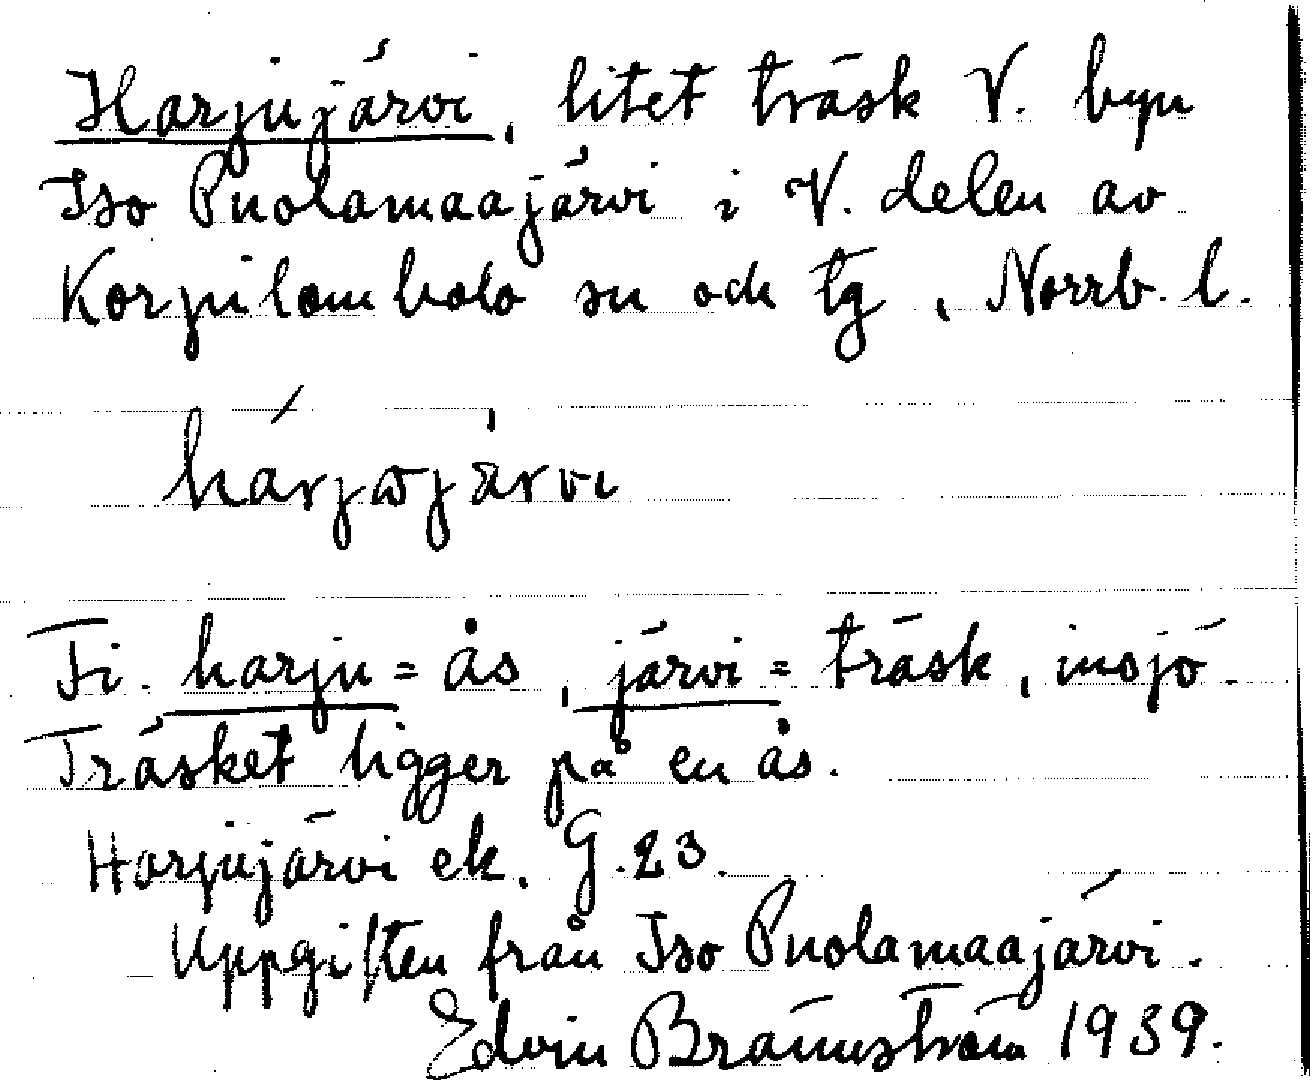 Harjujärvi, litet träsk V. byn
Iso Puolamaajärvi i V. delen av
Korpilombolo sn och tg, Norrb. l.
hárjωjä̀rvi
Fi. harju = ås, järvi = träsk, insjö.
Träsket ligger på en ås.
Harjujärvi ek. G. 23.
Uppgiften från Iso Puolamaajärvi.
Edvin Brännström 1939.